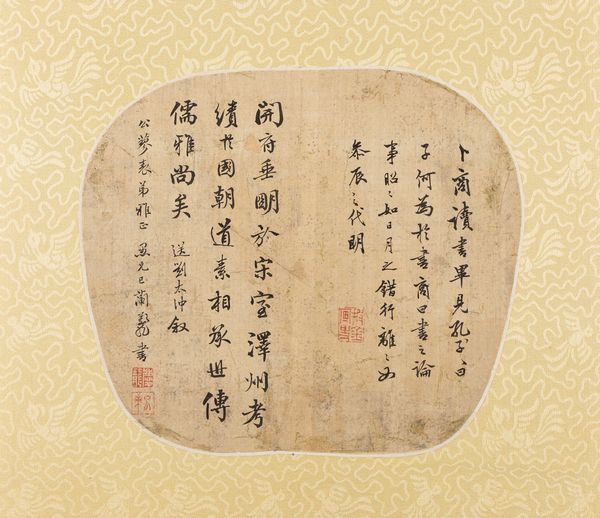 卜商讀書畢見孔子曰
子何為於書商曰書之論
事昭々如日月之錯行離々如
叅辰之代明
開府垂明於宋室澤州考
績於國朝道素相承世傳
儒雅尚矣 送劉太沖敘
公蓼表弟雅正 愚兄 蘭 書